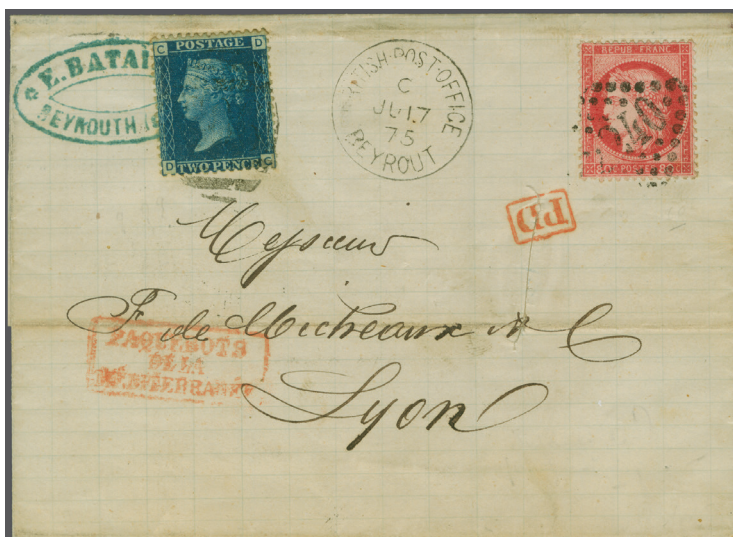 E. BATAI
BEYROUTH
POSTAGE
C D
D C
TWO PENCE
BRITISH POST OFFICE
C
JU 17
75
BEYROUT
REPUB. FRANC.
80 C. POSTES 80 C.
PD
Messieurs
F. de Micheaux & C
Lyon
PAQUEBOTS
DE LA
MEDITERRANEE